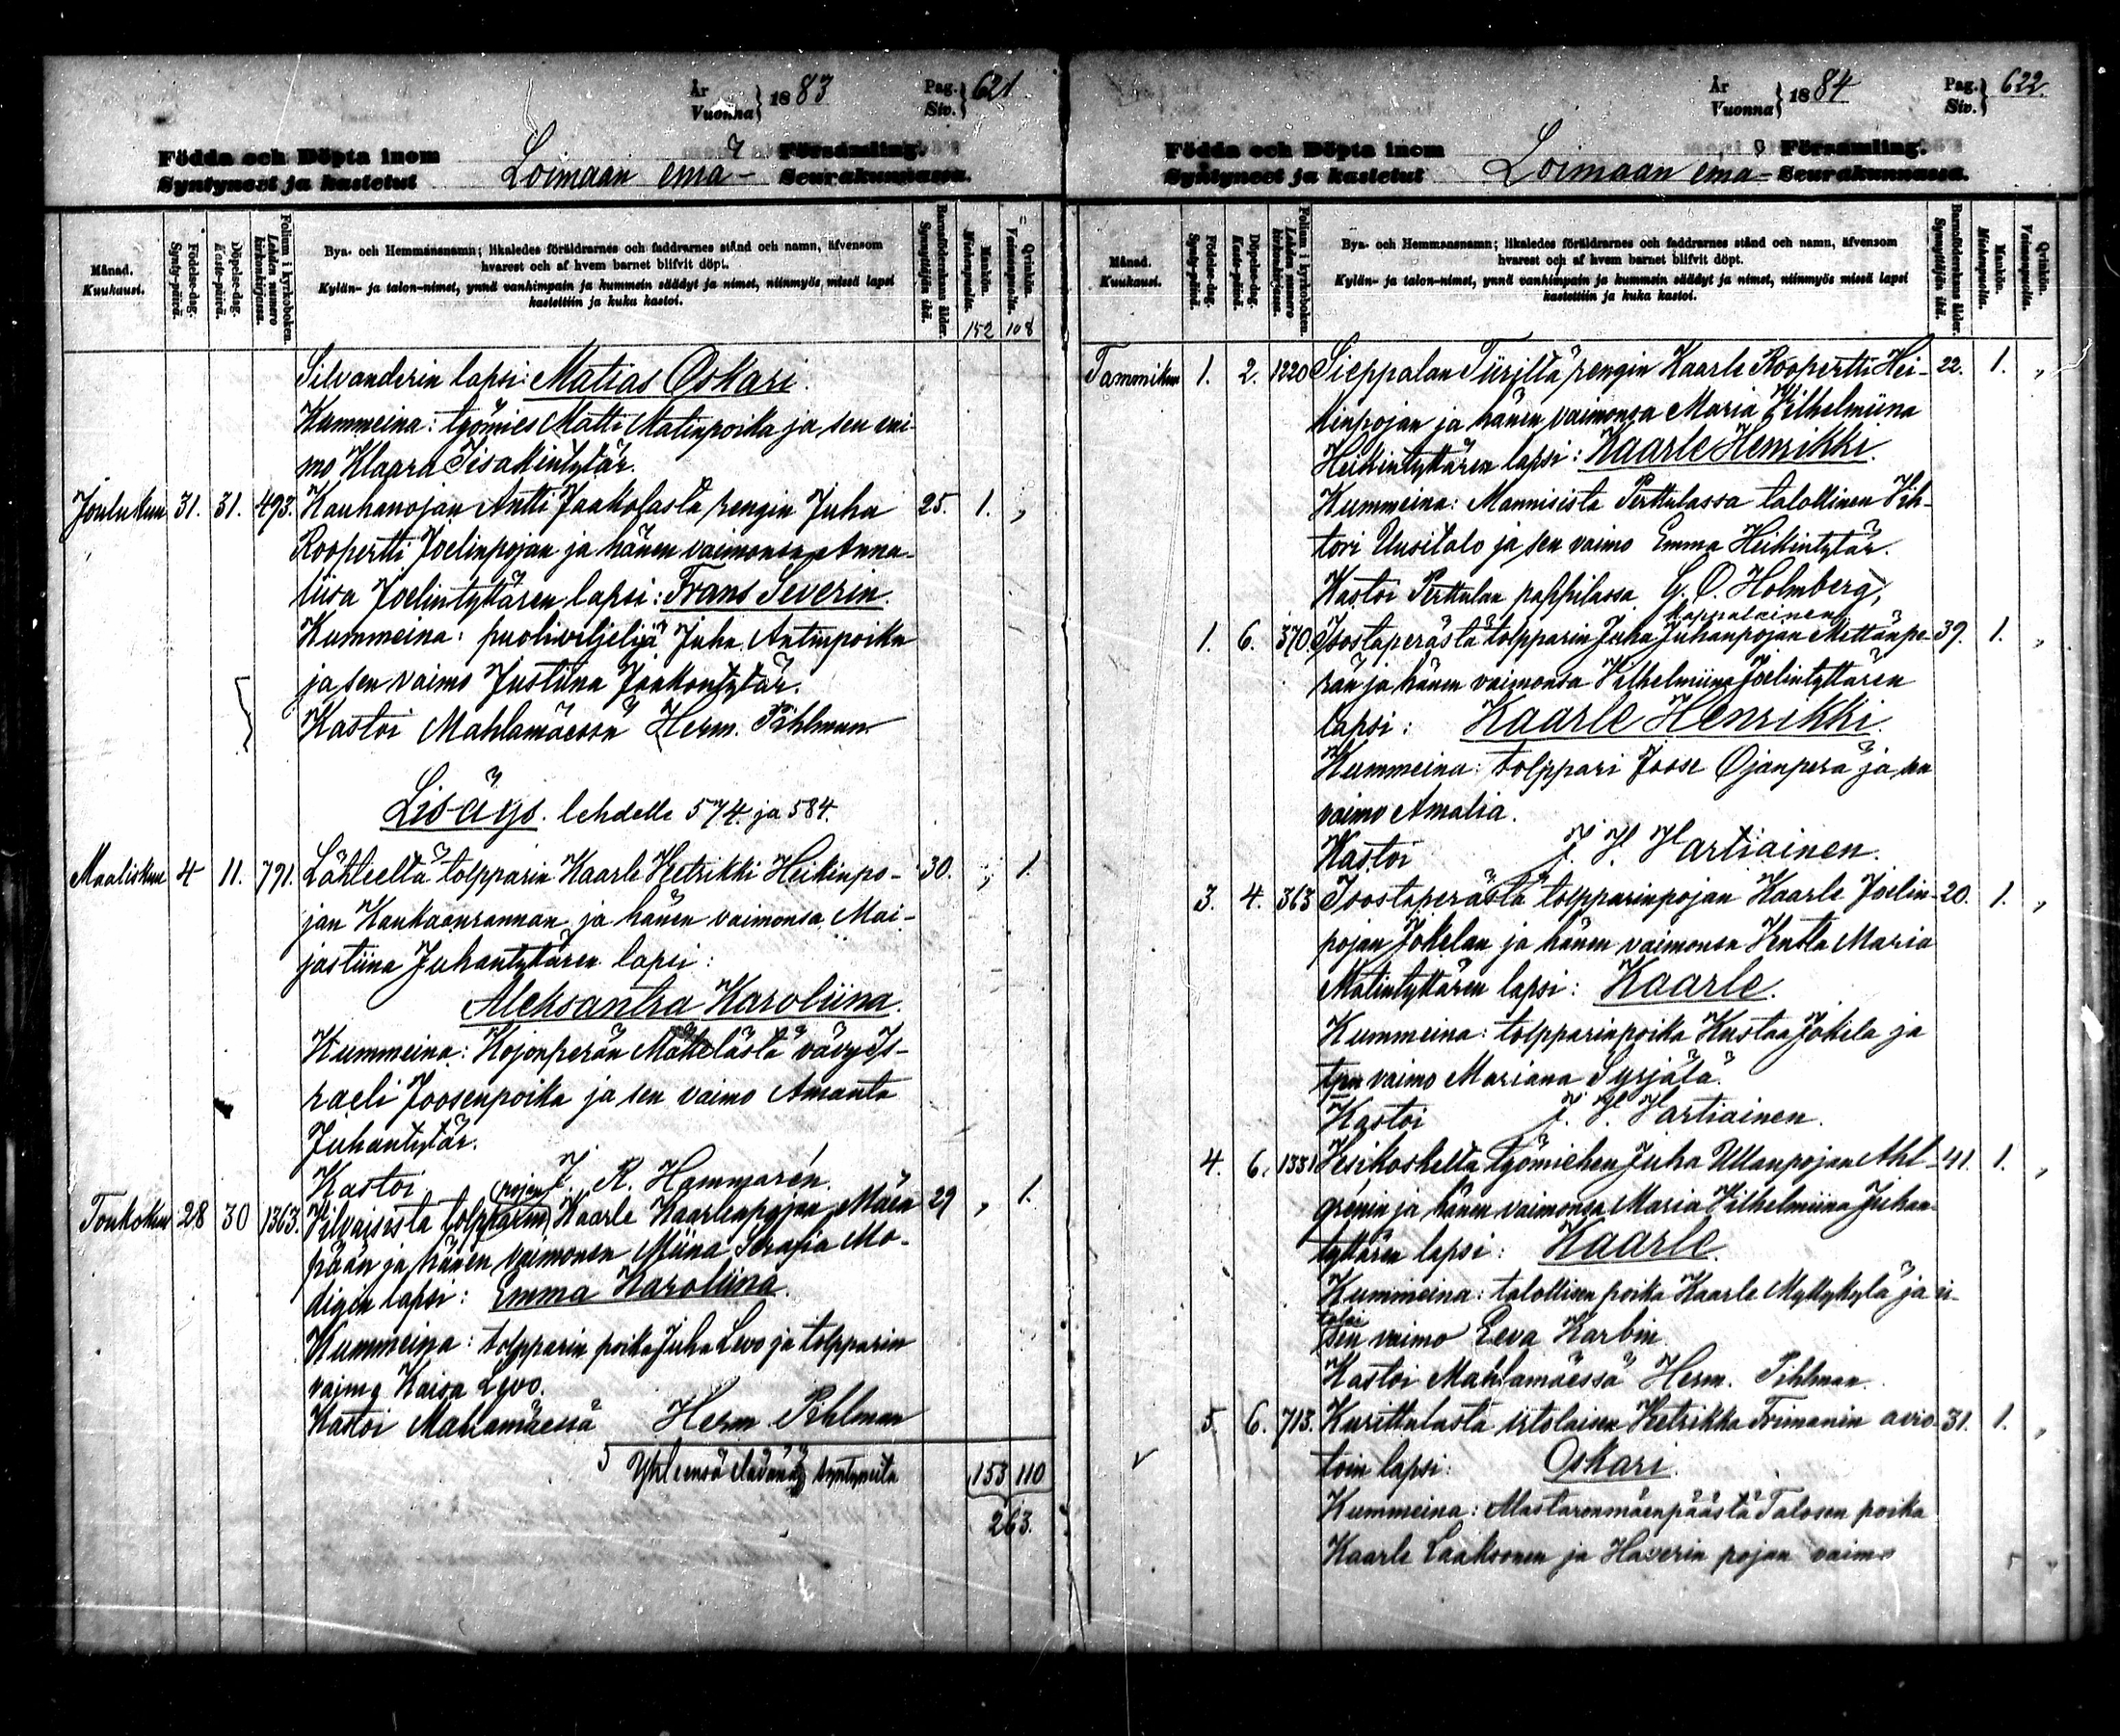 År
Vuonna} 1883
Pag.
Siv.} 621
Födda och Döpta inom
Syntyneet ja kastetut
Loimaan emä-
Församling.
Seurakunnassa.
Månad.
Kuukausi.
Födelse-dag.
Synty-päivä.
Döpelse-dag.
Kaste-päivä.
Folium i kyrkoboken.
Lehden numero kirkonkirjassa.
Bya- och Hemmansnamn; likaledes föräldrarnes och faddrarnes stånd och namn, äfvensom
hvarest och af hvem barnet blifvit döpt.
Kylän- ja talon-nimet, ynnä vanhimpain ja kummein säädyt ja nimet, niinmyös missä lapsi
kastettiin ja kuka kastoi.
Barnaföderskans ålder.
Synnyttäjän ikä.
Mankön.
Miehenpuolia.
Qvinkön.
Vaimonpuolia.
152 108
Silvanderin lapsi: Matias Oskari.
Kummeina: työmies Matti Matinpoika ja sen vai-
mo Klaara Iisakintytär.
Joulukuu 31. 31. 493. Kauhanojan Antti Jaakolasta rengin Juha 25. 1. „
Roopertti Joelinpojan ja hänen vaimonsa Anna-
liisa Joelintyttären lapsi: Frans Severin.
Kummeina: puoliviljelijä Juha Antinpoika
ja sen vaimo Justiina Jaakontytär.
Kastoi Mahlamäessä Herm. Pihlman
Lisäys. lehdelle 574. ja 584.
Maaliskuu 4 11. 791. Lähteeltä tolpparin Kaarle Veetrikki Heikinpo- 30. „ 1.
jan Kankaanrannan ja hänen vaimonsa Mai-
jastiina Juhantyttären lapsi:
Aleksantra Karoliina.
Kummeina: Kojonperän Mäkelästä vävy Is-
raeli Joosenpoika ja sen vaimo Amanta
Juhantytär.
Kastoi J. R. Hammarén.
pojan
Toukokuu 28 30 1363. Vilvaisista tolpparin Kaarle Kaarlenpojan Mäen 29 „ 1.
pään ja hänen vaimonsa Miina Serafia Mo-
digin lapsi: Emma Karoliina.
Kummeina: tolpparin poika Juha Levo ja tolpparin
vaimo Kaisa Levo.
Kastoi Mahlamäessä Herm. Pihlman
Yhteensä elävänä syntyneitä 153 110
263.
År
Vuonna} 1884
Pag.
Siv.} 622.
Födda och Döpta inom
Syntyneet ja kastetut
Loimaan emä-
Församling.
Seurakunnassa.
Månad.
Kuukausi.
Födelse-dag.
Synty-päivä.
Döpelse-dag.
Kaste-päivä.
Folium i kyrkoboken.
Lehden numero kirkonkirjassa.
Bya- och Hemmansnamn; likaledes föräldrarnes och faddrarnes stånd och namn, äfvensom
hvarest och af hvem barnet blifvit döpt.
Kylän- ja talon-nimet, ynnä vanhimpain ja kummein säädyt ja nimet, niinmyös missä lapsi
kastettiin ja kuka kastoi.
Barnaföderskans ålder.
Synnyttäjän ikä.
Mankön.
Miehenpuolia.
Qvinkön.
Vaimonpuolia.
Tammikuu 1. 2. 1220 Sieppalan Tiiriltä rengin Kaarle Roopertti Hei- 22. 1. „
kinpojan ja hänen vaimonsa Maria Vilhelmiina
Heikintyttären lapsi: Kaarle Henrikki.
Kummeina: Mannisista Perttulassa talollinen Vih-
tori Uusitalo ja sen vaimo Emma Heikintytär.
Kastoi Perttulan pappilassa G. O. Holmberg,
kappalainen
1. 6. 370. Isostaperästä tolpparin Juha Juhanpojan Mettänpe- 39. 1. „
rän ja hänen vaimonsa Vilhelmiina Joelintyttären
lapsi: Kaarle Henrikki.
Kummeina: tolppari Joose Ojanperä ja sen
vaimo Amalia.
Kastoi J. H. Hartiainen.
3. 4. 363 Isostaperästä tolpparinpojan Kaarle Joelin- 20. 1. „
pojan Jokelan ja hänen vaimonsa Henta Maria
Matintyttären lapsi: Kaarle.
Kummeina: tolpparinpoika Kustaa Jokela ja
tpn vaimo Mariana Syrjälä.
Kastoi J. H. Hartiainen.
4. 6. 1331 Vesikoskelta työmiehen Juha Ullanpojan Ahl- 41. 1. „
grénin ja hänen vaimonsa Maria Vilhelmiina Juhan-
tyttären lapsi: Kaarle.
Kummeina: talollisen poika Kaarle Myllykylä ja i-
sen vaimo Eeva Karbin.
Kastoi Mahlamäessä Herm. Pihlman.
5. 6. 713. Kurittulasta irtolaisen Veetrikka Forimanin avio- 31. 1. „
toin lapsi: Oskari.
Kummeina: Mastaronmäenpäästä Talosen poika
Kaarle Laaksonen ja Haverin pojan vaimo